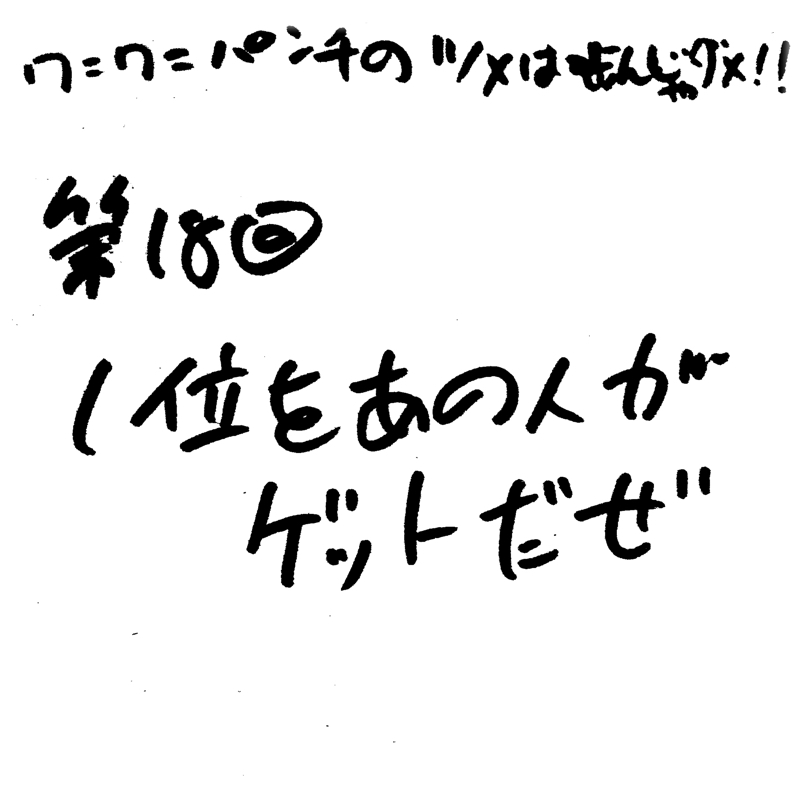 ワニワニパンチのツメは噛んじゃダメ!!
第18回
1位をあの人が
ゲットだぜ